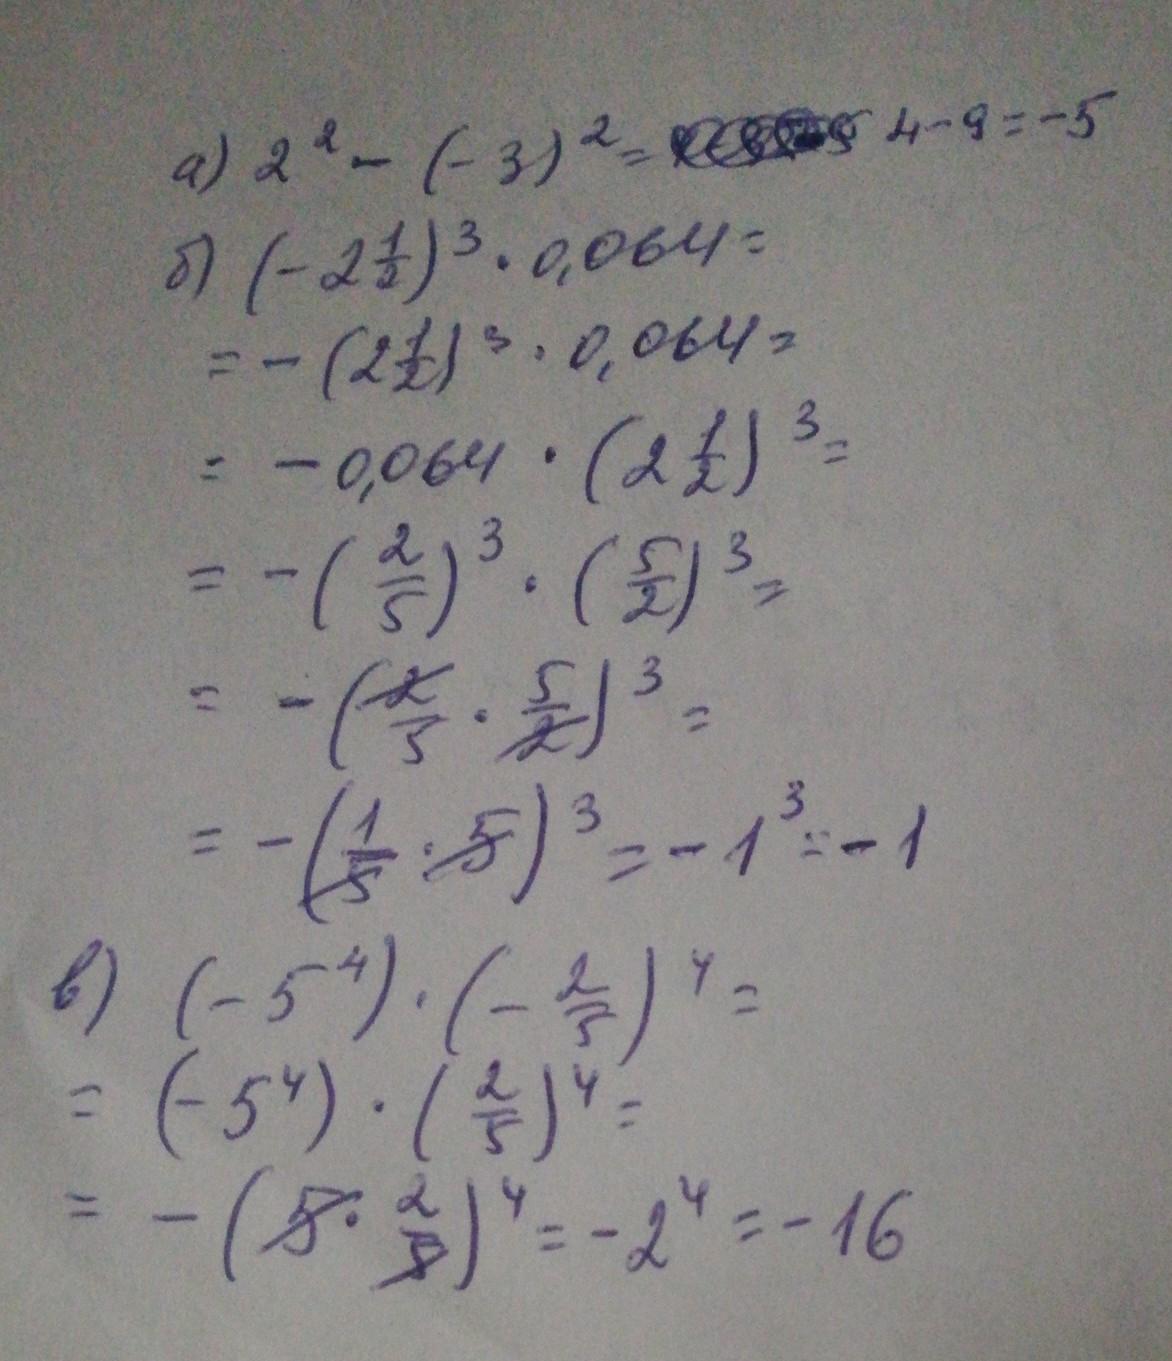 а) 2² - (-3)² = 4-9=-5
б) (-2 1/2)³ · 0,064=
= -(2 1/2)³ · 0,064=
= -0,064 · (2 1/2)³=
= -(2/5)³ · (5/2)³=
= -(2/5 · 5/2)³=
= -(1/5 · 5)³=-1³=-1
в) (-5⁴) · (-2/5)⁴=
= (-5⁴) · (2/5)⁴=
= -(5 · 2/5)⁴=-2⁴=-16